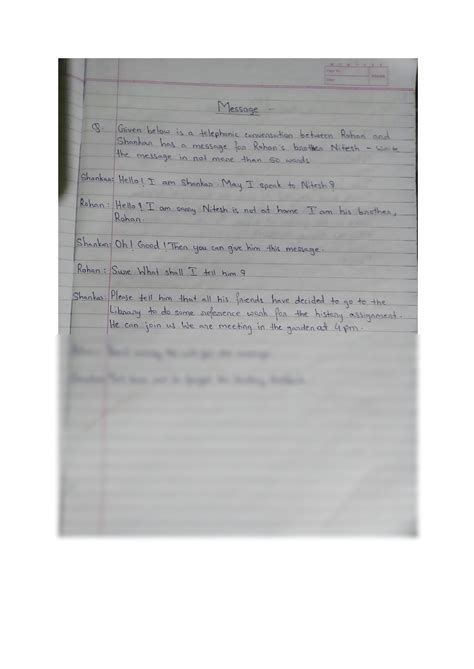 Message -
Q. Given below is a telephonic conversation between Rohan and
Shankar has a message for Rohan's brother Nitesh - write
the message in not more than 50 words
Shankar: Hello! I am Shankar. May I speak to Nitesh?
Rohan: Hello! I am sorry Nitesh is not at home I am his brother,
Rohan.
Shankar: Oh! Good! Then you can give him this message.
Rohan: Sure What shall I tell him?
Shankar: Please tell him that all his friends have decided to go to the
Library to do some reference work for the history assignment.
He can join us We are meeting in the garden at 4 pm.